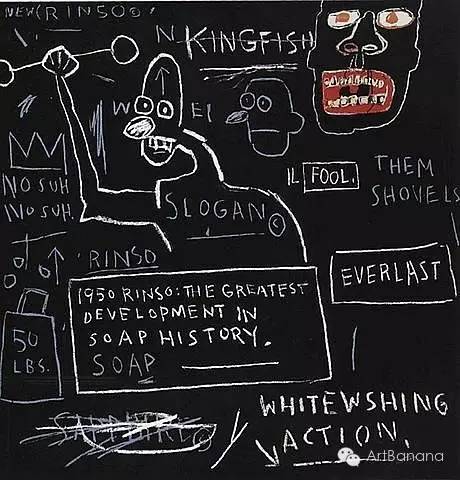 NEW(RINSO©
N KINGFISH
W EI
NO SUH
NO SUH.
IL FOOL.
THEM
SHOVELS
SLOGAN©
RINSO
1950 RINSO: THE GREATEST
DEVELOPMENT IN
SOAP HISTORY.
SOAP
EVERLAST
50
LBS.
WHITEWSHING
ACTION.
ArtBanana